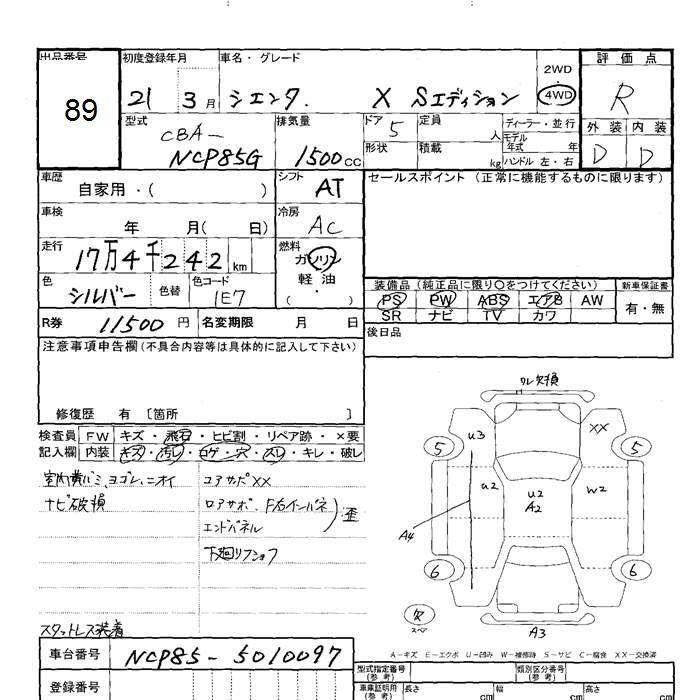 出品番号 初度登録年月 車名・グレード 評価点
89
21 3月 シエンタ. X Sエディション 2WD 4WD R
型式 排気量 ドア 定員 ディーラー・並行 外装 内装
CBA-
NCP85G 1500cc 5 人 モデル年式 年 D D
形状 積載 kg ハンドル 左・右
車歴 自家用・( ) シフト AT セールスポイント (正常に機能するものに限ります)
車検 年 月( 日) 冷房 AC
走行 17万4千242km 燃料 ガソリン
軽・油
・( )
色 シルバー 色替 色コード 1E7
装備品 (純正品に限り○をつけてください) 新車保証書
PS PW ABS エアB AW 有・無
SR ナビ TV カワ
R券 11500円 名変期限 月 日 後日品
注意事項申告欄(不具合内容等は具体的に記入して下さい)
修復歴 有 〔箇所 〕
検査員 FW キズ・飛石・ヒビ割・リペア跡・×要
記入欄 内装 キズ・汚レ・コゲ・穴・スレ・キレ・破レ
室内黄バミ、ヨゴレ、ニオイ
ナビ破損
コアサポXX
ロアサポ、F右インパネ
エンドパネル
歪
下廻リ
スタットレス装着
ワレ欠損
u3 XX
5 5
u2 u2 A2 w2
A4
6 6
欠
スペア
A3
A-キズ E-エクボ U-凹み W-補修跡 S-サビ C-腐食 XX-交換済
車台番号 NCP85-5010097
登録番号
型式指定番号 (参考) 類別区分番号 (参考)
車庫証明用 (参考) 長さ cm 幅 cm 高さ cm